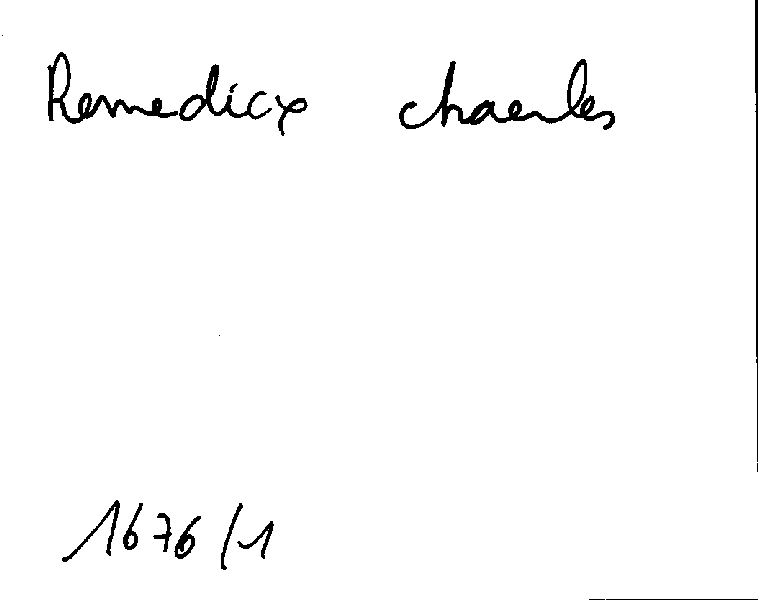 Remedicx chaerles
1676/1